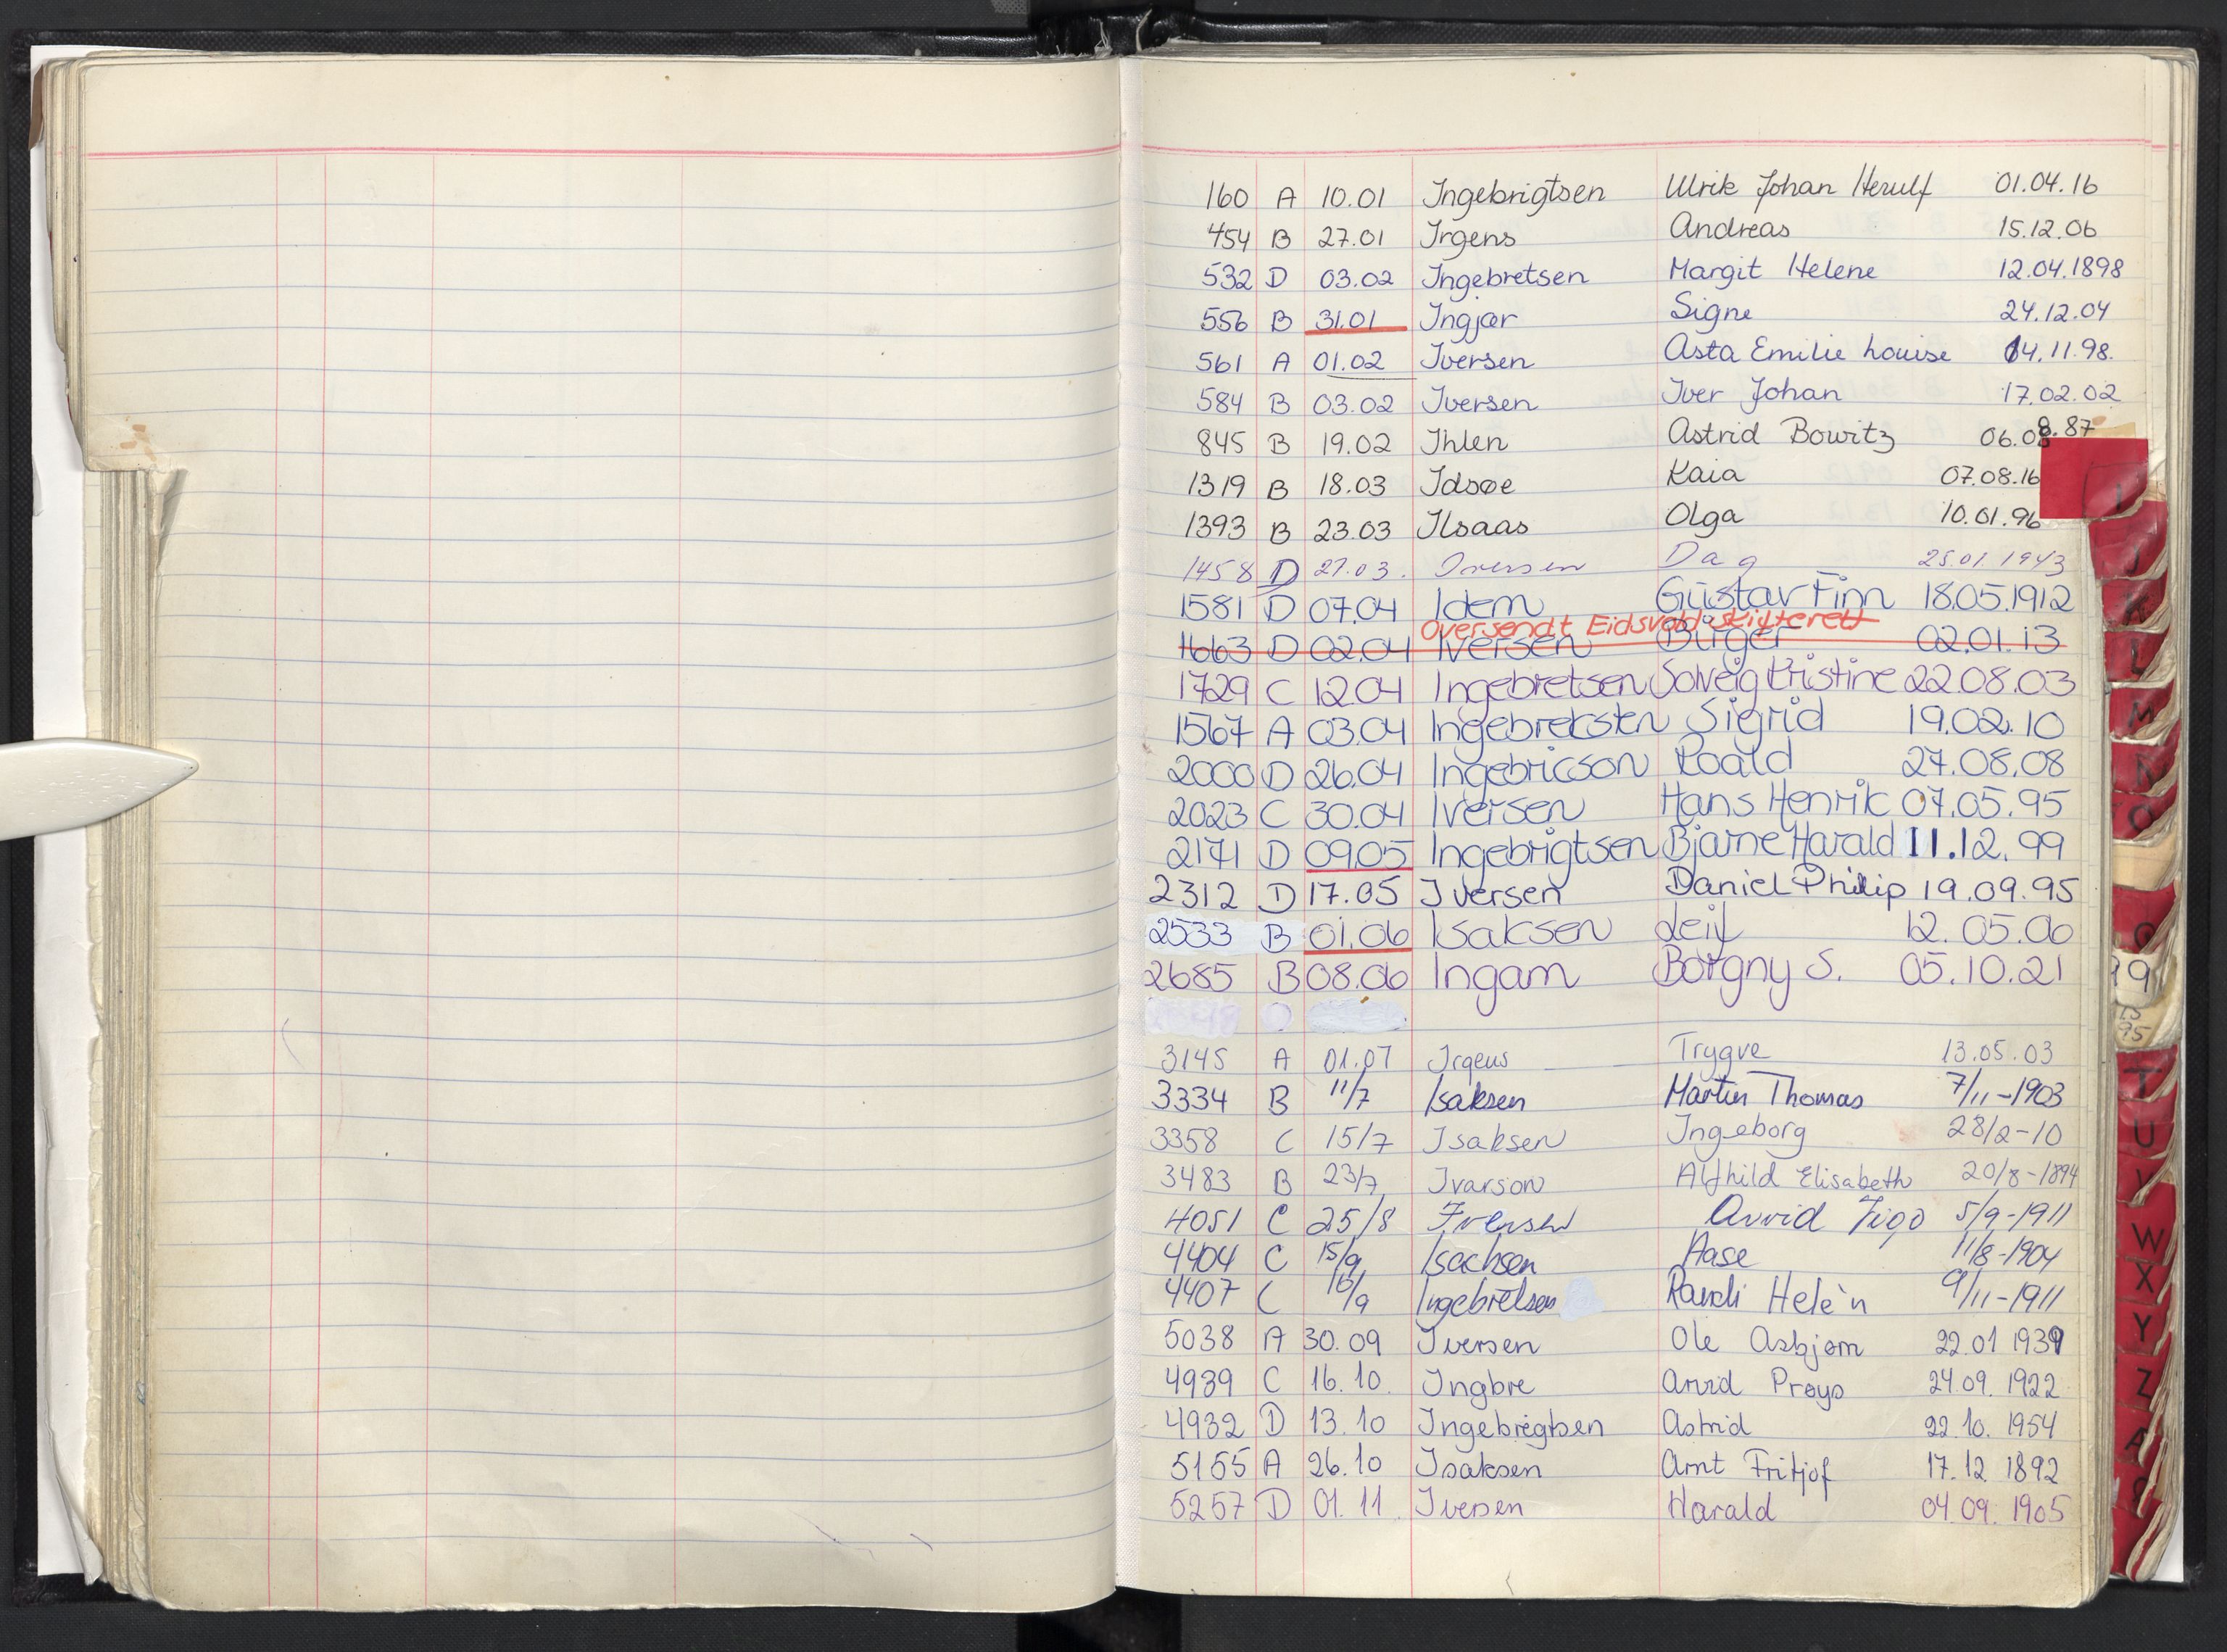 160 A 10.01 Ingebrigtsen Ulrik Johan Herulf 01.04.16
454 B 27.01 Irgens Andreas 15.12.06
532 D 03.02 Ingebretsen Margit Helene 12.04.1898
556 B 31.01 Ingjær Signe 24.12.04
561 A 01.02 Iversen Asta Emilie Louise 14.11.98.
584 B 03.02 Iversen Iver Johan 17.02.02
845 B 19.02 Ihlen Astrid Bowitz 06.08.87
1319 B 18.03 Idsøe Kaia 07.08.16
1393 B 23.03 Ilsaas Olga 10.01.96
1458 D 27.03. Iversen Dag 25.01.1943
1581 D 07.04 Idem Gustav Finn 18.05.1912
Oversendt Eidsvold skifterett
1663 D 02.04 Iversen Birger 02.01.13
1729 C 12.04 Ingebretsen Solveig Kristine 22.08.03
1567 A 03.04 Ingebretsen Sigrid 19.02.10
2000 D 26.04 Ingebricson Roald 27.08.08
2023 C 30.04 Iversen Hans Henrik 07.05.95
2171 D 09.05 Ingebrigtsen Bjarne Harald 11.12.99
2312 D 17.05 Iversen Daniel Philip 19.09.95
2533 B 01.06 Isaksen Leif 12.05.00
2685 B 08.06 Ingam Borgny S. 05.10.21
3145 A 01.07 Irgens Trygve 13.05.03
3334 B 11/7 Isaksen Martin Thomas 7/11-1903
3358 C 15/7 Isaksen Ingeborg 28/2-10
3483 B 23/7 Ivarson Alfhild Elisabeth 20/8-1894
4051 C 25/8 Iversen Arvid 5/9-1911
4404 C 15/9 Isachsen Aase 11/8-1904
4407 C 16/9 Ingebretsen Randi Helèn 9/11-1911
5038 A 30.09 Iversen Ole Asbjørn 22.01 1939
4939 C 16.10 Ingbre Arvid Prøys 24.09.1922
4932 D 13.10 Ingebrigtsen Astrid 22.10.1954
5155 A 26.10 Isaksen Arnt Fritjof 17.12 1892
5257 D 01.11 Iversen Harald 04.09.1905
I
J
K
L
M
N
O
T
U
V
W
X
Y
Z